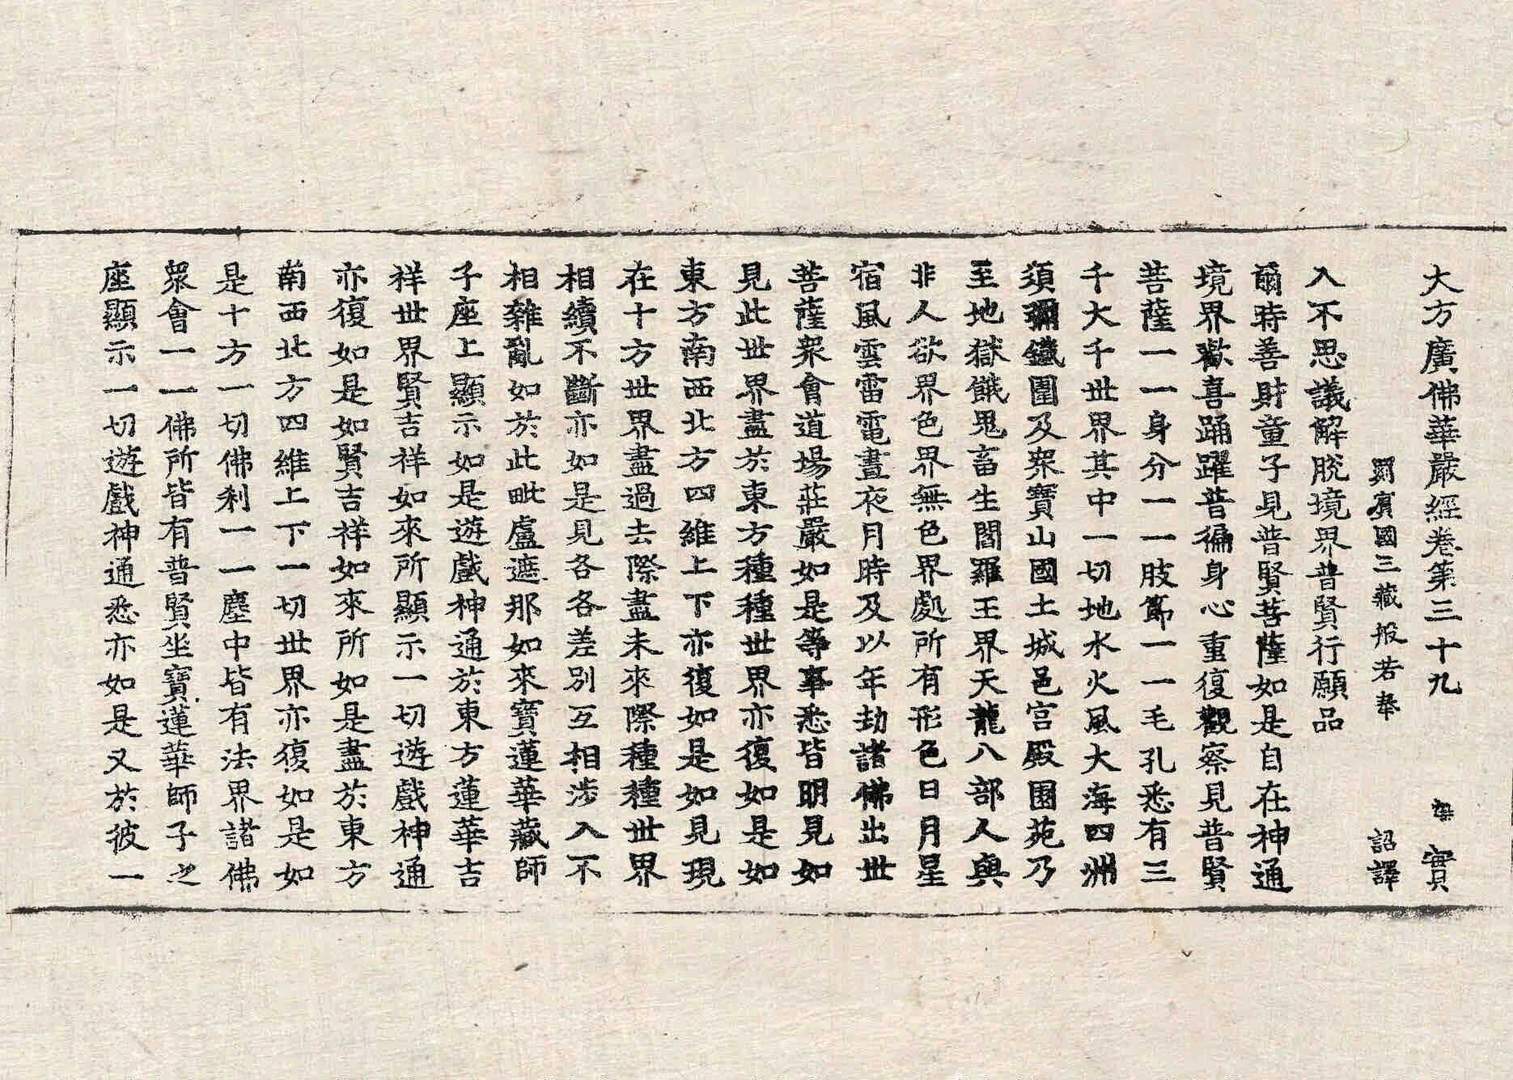 大方廣佛華嚴經卷第三十九 實
罽賓國三藏般若奉 詔譯
入不思議解脫境界普賢行願品
爾時善財童子見普賢菩薩如是自在神通
境界歡喜踊躍普徧身心重復觀察見普賢
菩薩一一身分一一肢節一一毛孔悉有三
千大千世界其中一切地水火風大海四洲
須彌鐵圍及衆寶山國土城邑宮殿園苑乃
至地獄餓鬼畜生閻羅王界天龍八部人與
非人欲界色界無色界處所有形色日月星
宿風雲雷電晝夜月時及以年劫諸佛出世
菩薩衆會道場莊嚴如是等事悉皆明見如
見此世界盡於東方種種世界亦復如是如
東方南西北方四維上下亦復如是如見現
在十方世界盡過去際盡未來際種種世界
相續不斷亦如是見各各差別互相涉入不
相雜亂如於此毗盧遮那如來寶蓮華藏師
子座上顯示如是遊戲神通於東方蓮華吉
祥世界賢吉祥如來所顯示一切遊戲神通
亦復如是如賢吉祥如來所如是盡於東方
南西北方四維上下一切世界亦復如是如
是十方一切佛刹一一塵中皆有法界諸佛
衆會一一佛所皆有普賢坐寶蓮華師子之
座顯示一切遊戲神通悉亦如是又於彼一